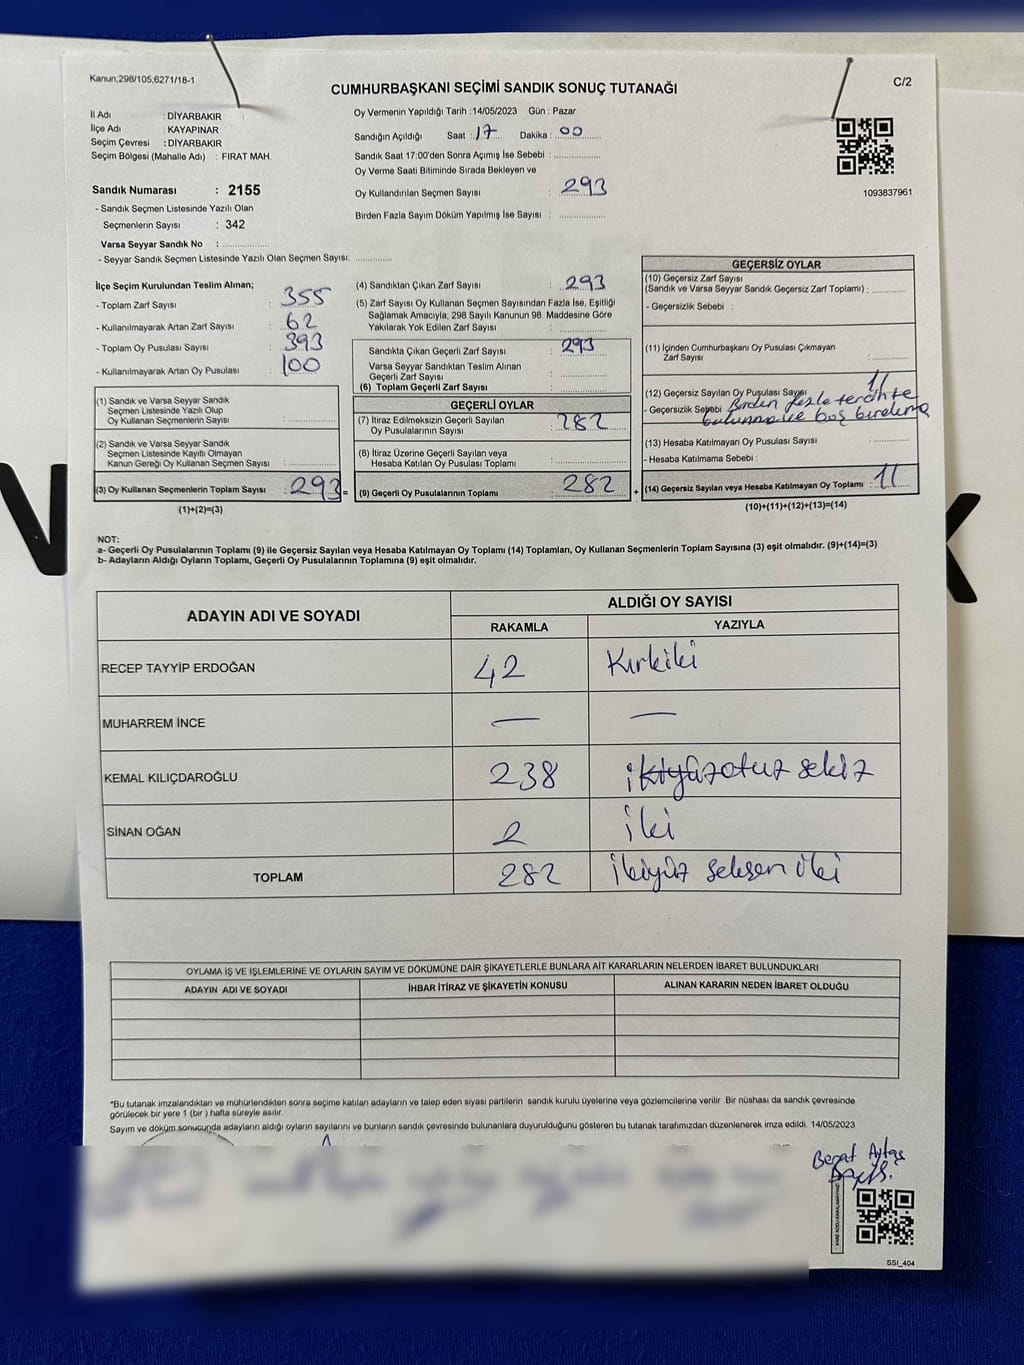 Kanun;298/105,6271/18-1
C/2
CUMHURBAŞKANI SEÇİMİ SANDIK SONUÇ TUTANAĞI
İl Adı : DİYARBAKIR
İlçe Adı : KAYAPINAR
Seçim Çevresi : DİYARBAKIR
Seçim Bölgesi (Mahalle Adı) : FIRAT MAH.
Sandık Numarası : 2155
- Sandık Seçmen Listesinde Yazılı Olan
Seçmenlerin Sayısı : 342
Varsa Seyyar Sandık No :
- Seyyar Sandık Seçmen Listesinde Yazılı Olan Seçmen Sayısı:
Oy Vermenin Yapıldığı Tarih : 14/05/2023 Gün : Pazar
Sandığın Açıldığı Saat : 17 Dakika : 00
Sandık Saat 17:00'den Sonra Açımış İse Sebebi :
Oy Verme Saati Bitiminde Sırada Bekleyen ve
Oy Kullandırılan Seçmen Sayısı : 293
Birden Fazla Sayım Döküm Yapılmış İse Sayısı :
1093837961
İlçe Seçim Kurulundan Teslim Alınan;
- Toplam Zarf Sayısı : 355
- Kullanılmayarak Artan Zarf Sayısı : 62
- Toplam Oy Pusulası Sayısı : 393
- Kullanılmayarak Artan Oy Pusulası : 100
(1) Sandık ve Varsa Seyyar Sandık
Seçmen Listesinde Yazılı Olup
Oy Kullanan Seçmenlerin Sayısı :
(2) Sandık ve Varsa Seyyar Sandık
Seçmen Listesinde Kayıtlı Olmayan
Kanun Gereği Oy Kullanan Seçmen Sayısı :
(3) Oy Kullanan Seçmenlerin Toplam Sayısı : 293 =
(1)+(2)=(3)
(4) Sandıktan Çıkan Zarf Sayısı : 293
(5) Zarf Sayısı Oy Kullanan Seçmen Sayısından Fazla İse, Eşitliği
Sağlamak Amacıyla, 298 Sayılı Kanunun 98. Maddesine Göre
Yakılarak Yok Edilen Zarf Sayısı :
Sandıkta Çıkan Geçerli Zarf Sayısı : 293
Varsa Seyyar Sandıktan Teslim Alınan
Geçerli Zarf Sayısı :
(6) Toplam Geçerli Zarf Sayısı :
GEÇERLİ OYLAR
(7) İtiraz Edilmeksizin Geçerli Sayılan
Oy Pusulalarının Sayısı : 282
(8) İtiraz Üzerine Geçerli Sayılan veya
Hesaba Katılan Oy Pusulası Toplamı :
(9) Geçerli Oy Pusulalarının Toplamı : 282 +
GEÇERSİZ OYLAR
(10) Geçersiz Zarf Sayısı
(Sandık ve Varsa Seyyar Sandık Geçersiz Zarf Toplamı) :
- Geçersizlik Sebebi :
(11) İçinden Cumhurbaşkanı Oy Pusulası Çıkmayan
Zarf Sayısı :
(12) Geçersiz Sayılan Oy Pusulası Sayısı 11
- Geçersizlik Sebebi Birden fazla tercihte
bulunma ve boş bırakma
(13) Hesaba Katılmayan Oy Pusulası Sayısı :
- Hesaba Katılmama Sebebi :
(14) Geçersiz Sayılan veya Hesaba Katılmayan Oy Toplamı : 11
(10)+(11)+(12)+(13)=(14)
NOT:
a- Geçerli Oy Pusulalarının Toplamı (9) ile Geçersiz Sayılan veya Hesaba Katılmayan Oy Toplamı (14) Toplamları, Oy Kullanan Seçmenlerin Toplam Sayısına (3) eşit olmalıdır. (9)+(14)=(3)
b- Adayların Aldığı Oyların Toplamı, Geçerli Oy Pusulalarının Toplamına (9) eşit olmalıdır.
ADAYIN ADI VE SOYADI ALDIĞI OY SAYISI
RAKAMLA YAZIYLA
RECEP TAYYİP ERDOĞAN 42 Kırkiki
MUHARREM İNCE — —
KEMAL KILIÇDAROĞLU 238 ikiyüzotuz sekiz
SİNAN OĞAN 2 iki
TOPLAM 282 ikiyüz seksen iki
OYLAMA İŞ VE İŞLEMLERİNE VE OYLARIN SAYIM VE DÖKÜMÜNE DAİR ŞİKAYETLERLE BUNLARA AİT KARARLARIN NELERDEN İBARET BULUNDUKLARI
ADAYIN ADI VE SOYADI İHBAR İTİRAZ VE ŞİKAYETİN KONUSU ALINAN KARARIN NEDEN İBARET OLDUĞU
*Bu tutanak imzalandıktan ve mühürlendikten sonra seçime katılan adayların ve talep eden siyasi partilerin sandık kurulu üyelerine veya gözlemcilerine verilir .Bir nüshası da sandık çevresinde
görülecek bir yere 1 (bir ) hafta süreyle asılır.
Sayım ve döküm sonucunda adayların aldığı oyların sayılarını ve bunların sandık çevresinde bulunanlara duyurulduğunu gösteren bu tutanak tarafımızdan düzenlenerek imza edildi. 14/05/2023
SSI_404